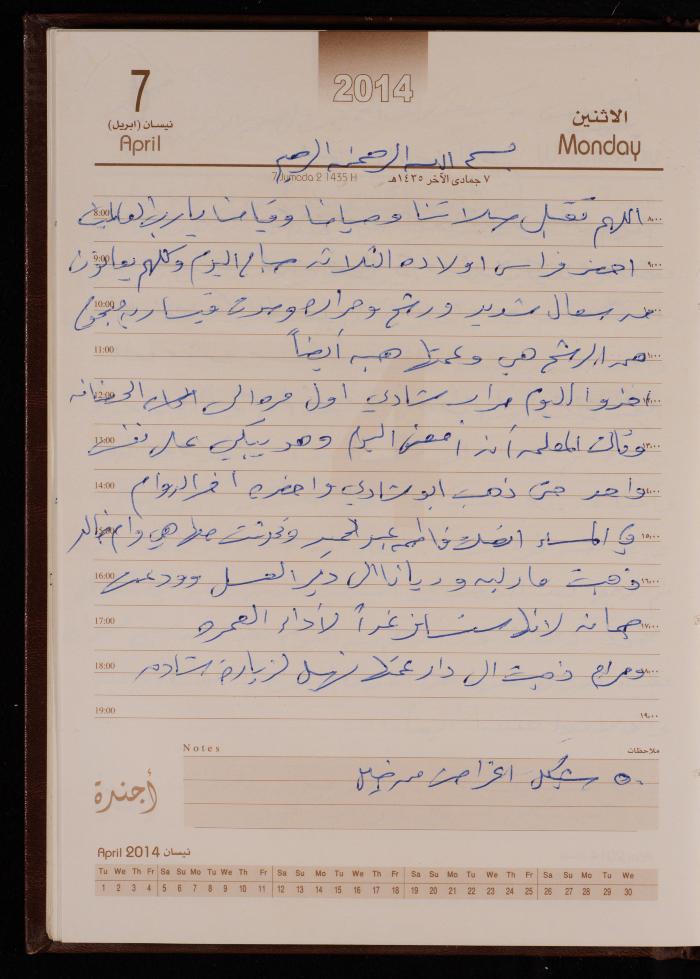 2014
7
نيسان (ابريل)
April
الاثنين
Monday
بسم الله الرحمن الرحيم
7 Jumada 2 1435 H
٧ جمادى الآخر ١٤٣٥هـ
8:00 اللهم تقبل صلاتنا وصيامنا وقيامنا يا رب العالمين ٨:٠٠
9:00 احضر فراس اولاده الثلاثه صباح اليوم وكلهم يعانون ٩:٠٠
10:00 من سعال شديد ورشح وحراره وصوت
11:00 من الرشح هي وعمتها هبه أيضاً ١١:٠٠
12:00 اليوم شادي اول مره الى الحضانه ١٢:٠٠
13:00 وقالت المعلمه أنه أمضى اليوم وهو يبكي على نفس ١٣:٠٠
14:00 واحد حتى ذهب ابو شادي واحضره آخر الدوام ١٤:٠٠
في المساء اتصلت فاطمه عبد الحميد وتحدثت معها هي وام خالد ١٥:٠٠
16:00 ذهبت ماريه وريانا الى دير العسل وودعت ١٦:٠٠
17:00 لانها ستسافر غداً لأداء العمره ١٧:٠٠
18:00 ومرام ذهبت الى دار عمتها لزيارة ١٨:٠٠
19:00 ١٩:٠٠
Notes
ملاحظات
٥٠ شيكل اغراض من
أجندة
April 2014 نيسان
Tu We Th Fr Sa Su Mo Tu We Th Fr Sa Su Mo Tu We Th Fr Sa Su Mo Tu We Th Fr Sa Su Mo Tu We
1 2 3 4 5 6 7 8 9 10 11 12 13 14 15 16 17 18 19 20 21 22 23 24 25 26 27 28 29 30